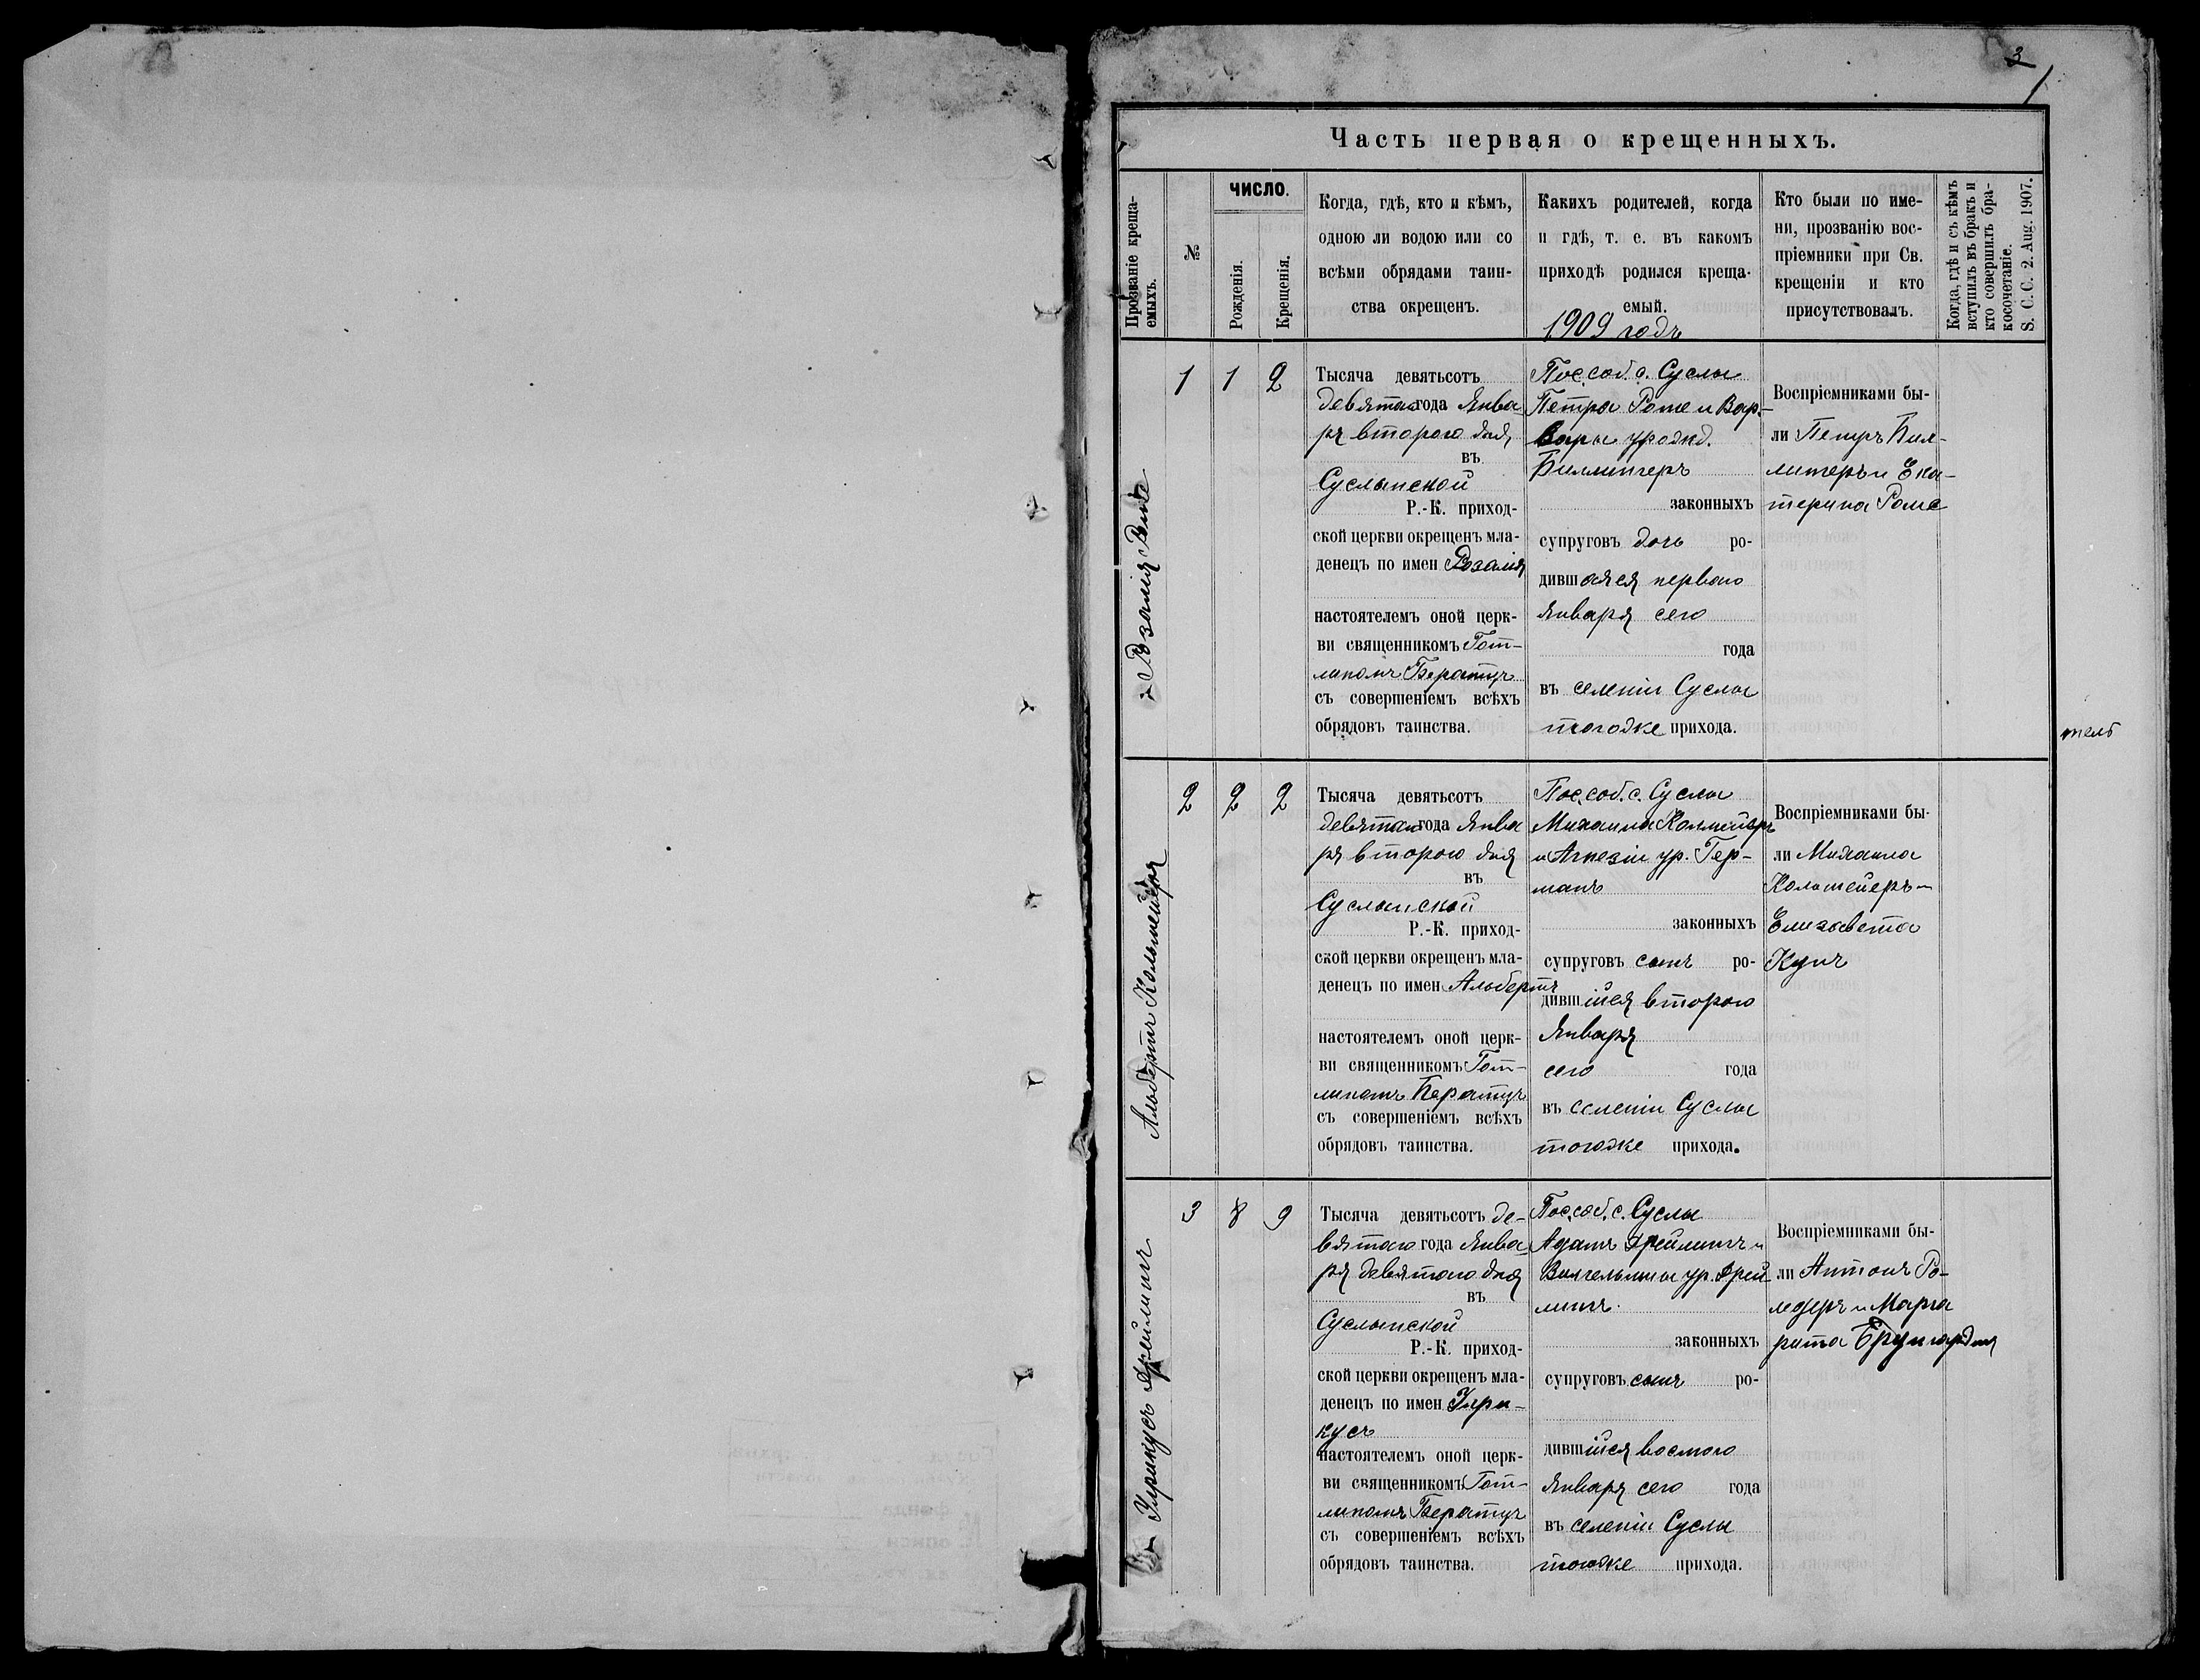 3
1
Часть первая о крещенныхъ.
Прозваніе креща-
емыхъ.
№
ЧИСЛО.
Рожденія.
Крещенія.
Когда, гдѣ, кто и кѣмъ,
одною ли водою или со
всѣми обрядами таин-
ства окрещенъ.
Какихъ родителей, когда
и гдѣ, т. е. въ какомъ
приходѣ родился креща-
емый.
1909 годъ
Кто были по име-
ни, прозванію вос-
пріемники при Св.
крещеніи и кто
присутствовалъ.
Когда, гдѣ и съ кѣмъ
вступилъ въ бракъ и
кто совершилъ бра-
косочетаніе.
S. C. C. 2. Aug. 1907.
Розалія Роте
1
1
2
Тысяча девятьсотъ
девятаго года Янва-
ря второго дня
въ
Суслынской
Р.-К. приход-
ской церкви окрещенъ мла-
денецъ по имен Розалія
настоятелемъ оной церк-
ви священникомъ Гот-
липомъ Бератцъ
съ совершеніемъ всѣхъ
обрядовъ таинства.
Пос. соб. с. Суслы
Петра Роте и Вар-
вары урожд.
Биллингеръ
законныхъ
супруговъ дочь ро-
дившаяся перваго
Января сего
года
въ селеніи Суслы
тогоже прихода.
Воспріемниками бы-
ли Петръ Бил-
лингеръ и Ека-
терина Роте
тель
Альбертъ Кольмейеръ
2
2
2
Тысяча девятьсотъ
девятаго года Янва
ря второго дня
въ
Суслынской
Р.-К. приход-
ской церкви окрещенъ мла-
денецъ по имен Альбертъ
настоятелемъ оной церк-
ви священникомъ Гот-
липомъ Бератцъ
съ совершеніемъ всѣхъ
обрядовъ таинства.
Пос. соб. с. Суслы
Михаила Колмейеръ
и Агнезіи ур. Гер-
манъ
законныхъ
супруговъ сынъ ро-
дившійся второго
Января
сего года
въ селеніи Суслы
тогоже прихода.
Воспріемниками бы-
ли Михаила
Кольмейеръ и
Елизавета
Кунъ
Улрикусъ Дрейлингъ
3
8
9
Тысяча девятьсотъ де-
вятаго года Янва-
ря девятого дня
въ
Суслынской
Р.-К. приход-
ской церкви окрещенъ мла-
денецъ по имен Улри-
кусъ
настоятелемъ оной церк-
ви священникомъ Гот-
липомъ Бератцъ
съ совершеніемъ всѣхъ
обрядовъ таинства.
Пос. соб. с. Суслы
Адамъ Дрейлингъ и
Вилгельмины ур. Дрей
лингъ.
законныхъ
супруговъ сынъ ро-
дившійся восмого
Января сего года
въ селеніи Суслы
тогоже прихода.
Воспріемниками бы-
ли Антонъ Ро-
ледеръ и Марга
рита Брунгардтъ